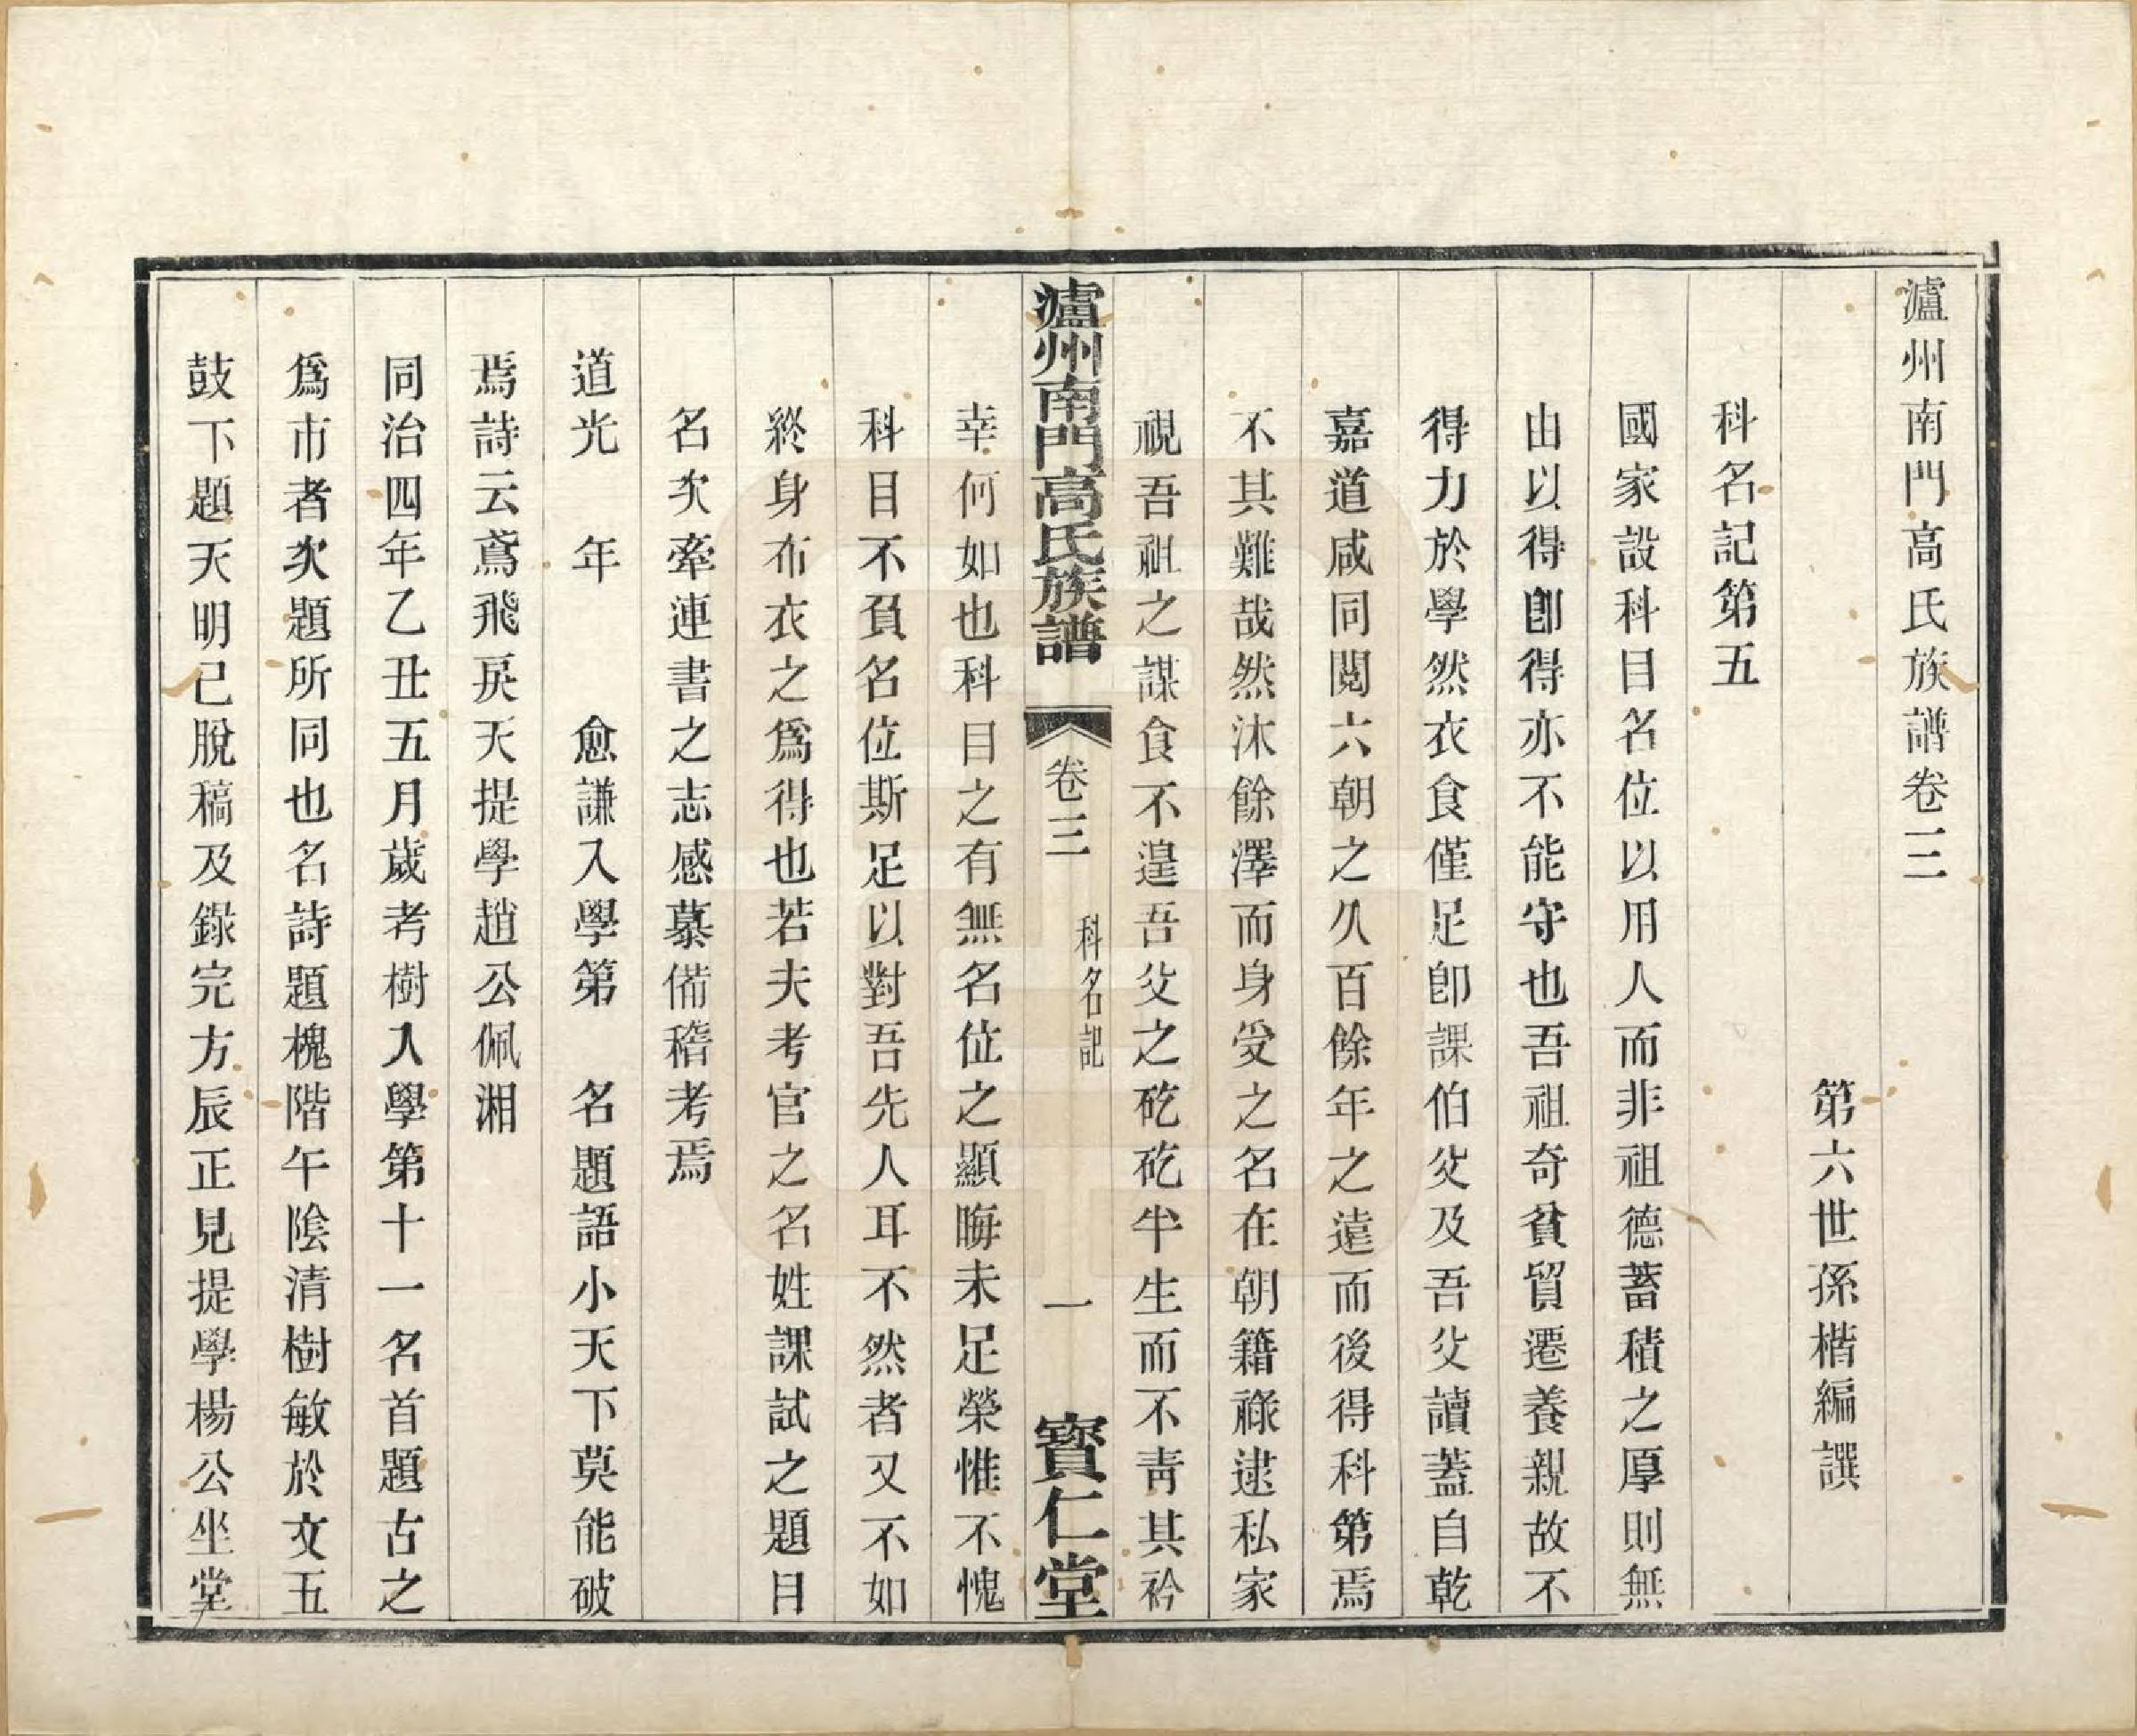 瀘州南門高氏族譜卷三
第六世孫楷編譔
科名記第五
國家設科目名位以用人而非祖德蓄積之厚則無
由以得卽得亦不能守也吾祖奇貧貿遷養親故不
得力於學然衣食僅足卽課伯父及吾父讀蓋自乾
嘉道咸同閱六朝之久百餘年之遠而後得科第焉
不其難哉然沐餘澤而身受之名在朝籍祿逮私家
視吾祖之謀食不遑吾父之矻矻半生而不靑其衿
瀘州南門高氏族譜 卷三 科名記 一 寶仁堂
幸何如也科目之有無名位之顯晦未足榮惟不愧
科目不負名位斯足以對吾先人耳不然者又不如
終身布衣之爲得也若夫考官之名姓課試之題目
名次牽連書之志感慕備稽考焉
道光 年 愈謙入學第 名題語小天下莫能破
焉詩云鳶飛戾天提學趙公佩湘
同治四年乙丑五月歲考樹入學第十一名首題古之
爲市者次題所同也名詩題槐階午陰清樹敏於文五
鼓下題天明已脫稿及錄完方辰正見提學楊公坐堂